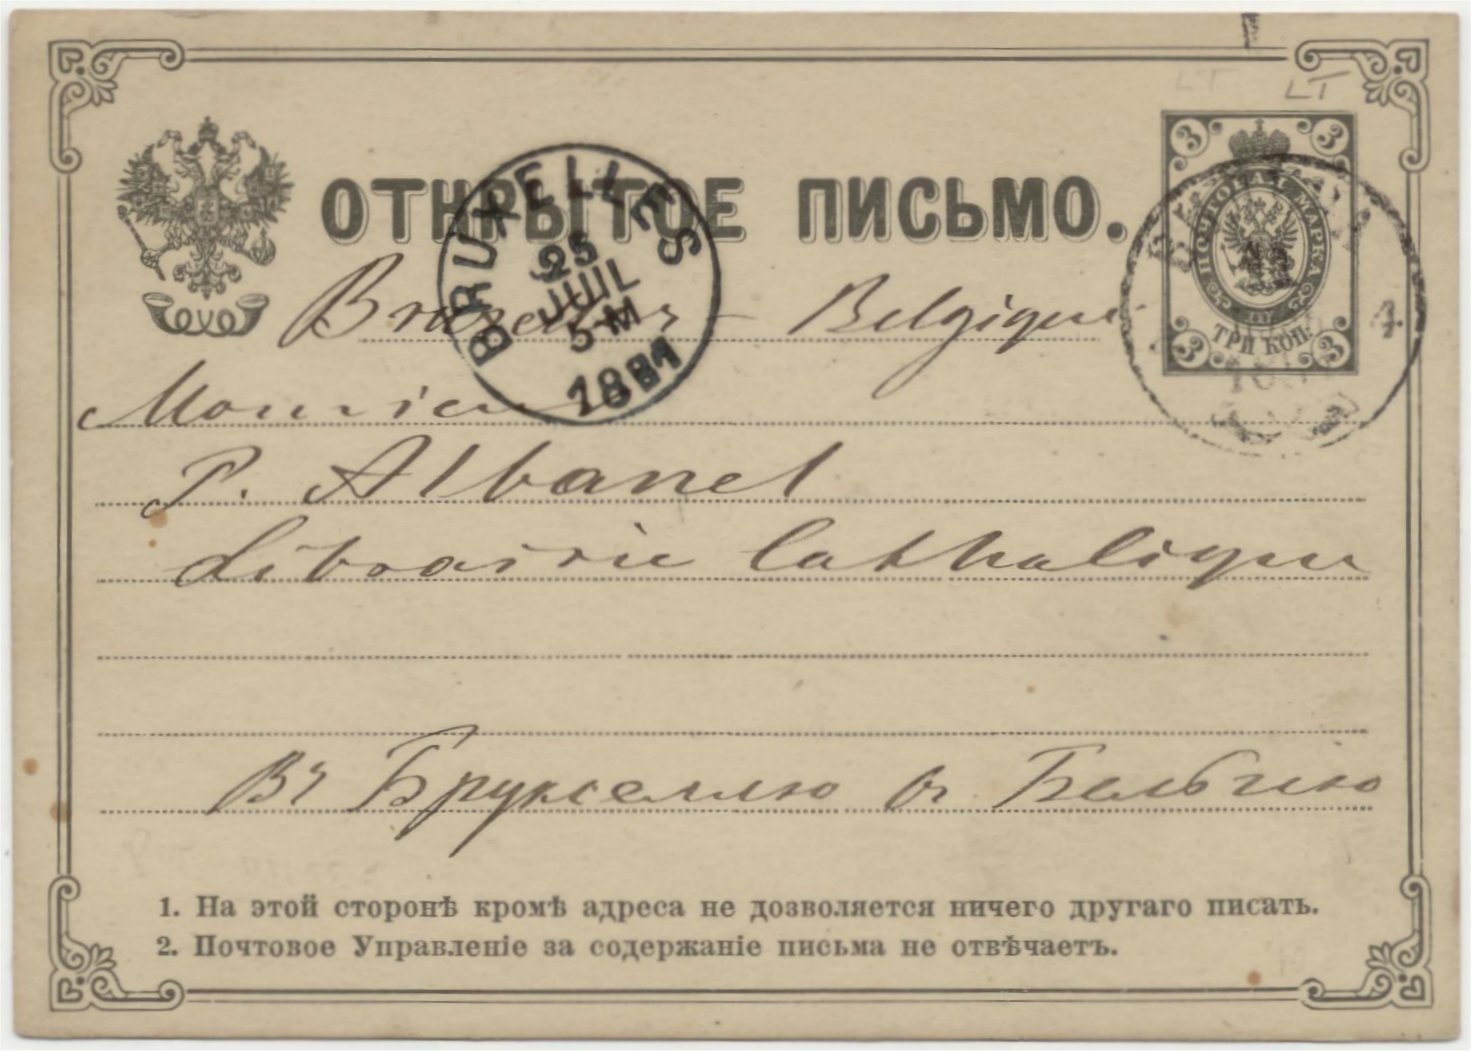 LT LT
ОТКРЫТОЕ ПИСЬМО.
3 3
ПОЧТОВАЯ МАРКА
ТРИ КОП.
3 3
BRUXELLES
25
JUIL
5-M
1881
4
Bruxelles - Belgique
Monsieur
P. Albanel
Librairie Catholique
Въ Брукселлю въ Бельгію
1. На этой сторонѣ кромѣ адреса не дозволяется ничего другаго писать.
2. Почтовое Управленіе за содержаніе письма не отвѣчаетъ.